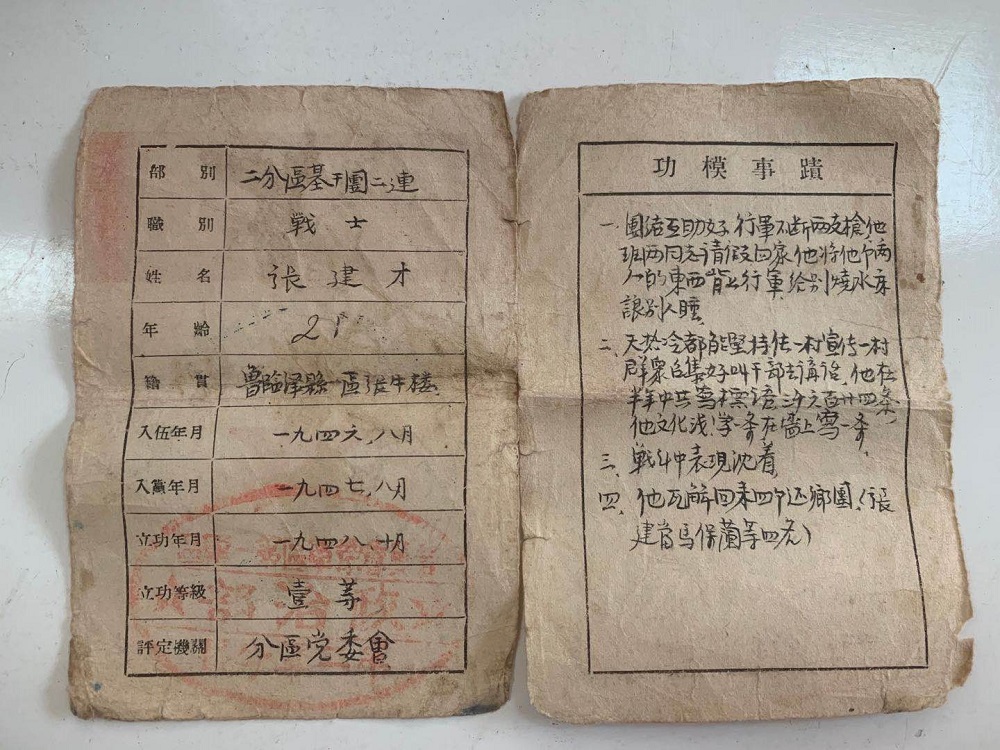 部別 二分區基干團二連
職別 戰士
姓名 張建才
年齡 21
籍貫 魯臨澤縣一區張牛楼
入伍年月 一九四六.八月
入黨年月 一九四七.八月
立功年月 一九四八.十月
立功等級 壹等
評定機關 分區党委會
功模事蹟
一、團结互助好.行軍不断两支槍他
班两同志请假回家他將他ㄗ两
个的東西背上行軍给别燒水
讓别人睡.
二、天热冷都能堅持住一村宣传一村
群衆召集好叫干部去講话.他在
半年中共寫標語三千六百廿四条
他文化浅.学一条在墙上寫一条
三、戰斗中表現沈着
四、他瓦解回来四个还鄉團.(張
建 馬保蘭等四名)